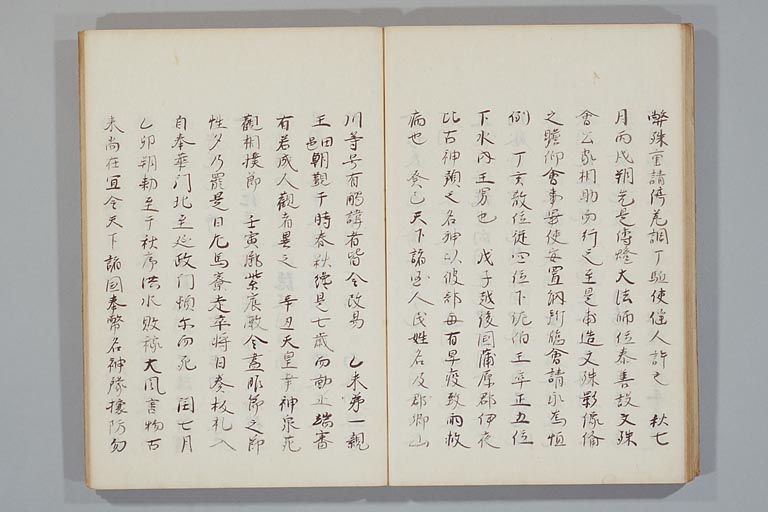 弊殊重請停差調丁駈使傜人許之　秋七
月丙戌朔先是傳燈大法師位泰善設文殊
會公家相助而行之至是甫造文殊影像備
之瞻仰會事畢使安置納所臨會請以為恒
例　丁亥散位從四位下伯王卒正五位
下水内王男也　戊子越後國蒲原郡伊夜
比古神預之名神以彼郡毎有旱疫致雨救
病也　癸巳天下諸國人民姓名及郡郷山
川等号有觸諱者皆令改易　乙未第一親
王田邑朝覲于時春秋纔是七歳而動止端審
有若成人觀者異之　辛丑天皇幸神泉苑
觀相撲節　壬寅御紫宸殿令盡昨節之節
性夕乃罷是日馬寮走卒將日奏板札入
自奉華門北至延政門頓尓而死　閏七月
乙卯朔勅至于秋序洪水敗稼大風害物古
来尚在宜令天下諸国奉幣名神攘防勿